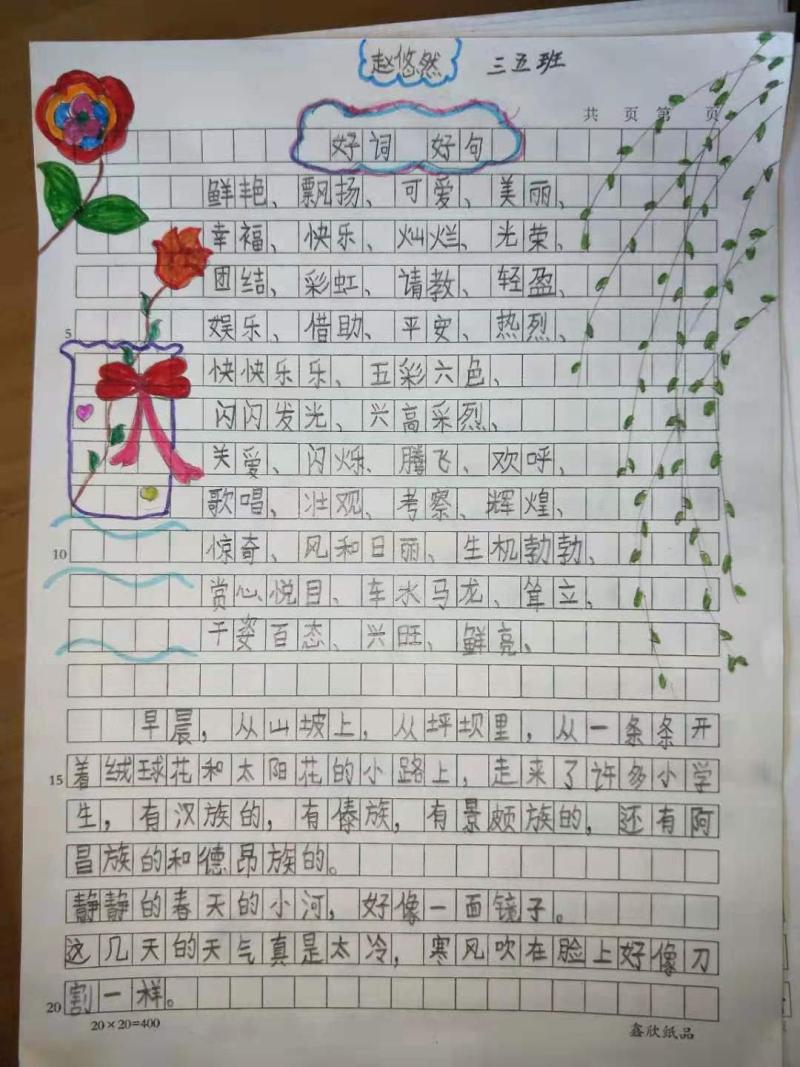 赵悠然 三五班
共 页 第 页
好词 好句
鲜艳、飘扬、可爱、美丽、
幸福、快乐、灿烂、光荣、
团结、彩虹、请教、轻盈、
5 娱乐、借助、平安、热烈、
快快乐乐、五彩六色、
闪闪发光、兴高采烈、
关爱、闪烁、腾飞、欢呼、
歌唱、壮观、考察、辉煌、
10 惊奇、风和日丽、生机勃勃、
赏心悦目、车水马龙、耸立、
千姿百态、兴旺、鲜亮、
早晨，从山坡上，从坪坝里，从一条条开
15 着绒球花和太阳花的小路上，走来了许多小学
生，有汉族的，有傣族，有景颇族的，还有阿
昌族的和德昂族的。
静静的春天的小河，好像一面镜子。
这几天的天气真是太冷，寒风吹在脸上好像刀
20 割一样。
20×20=400 鑫欣纸品